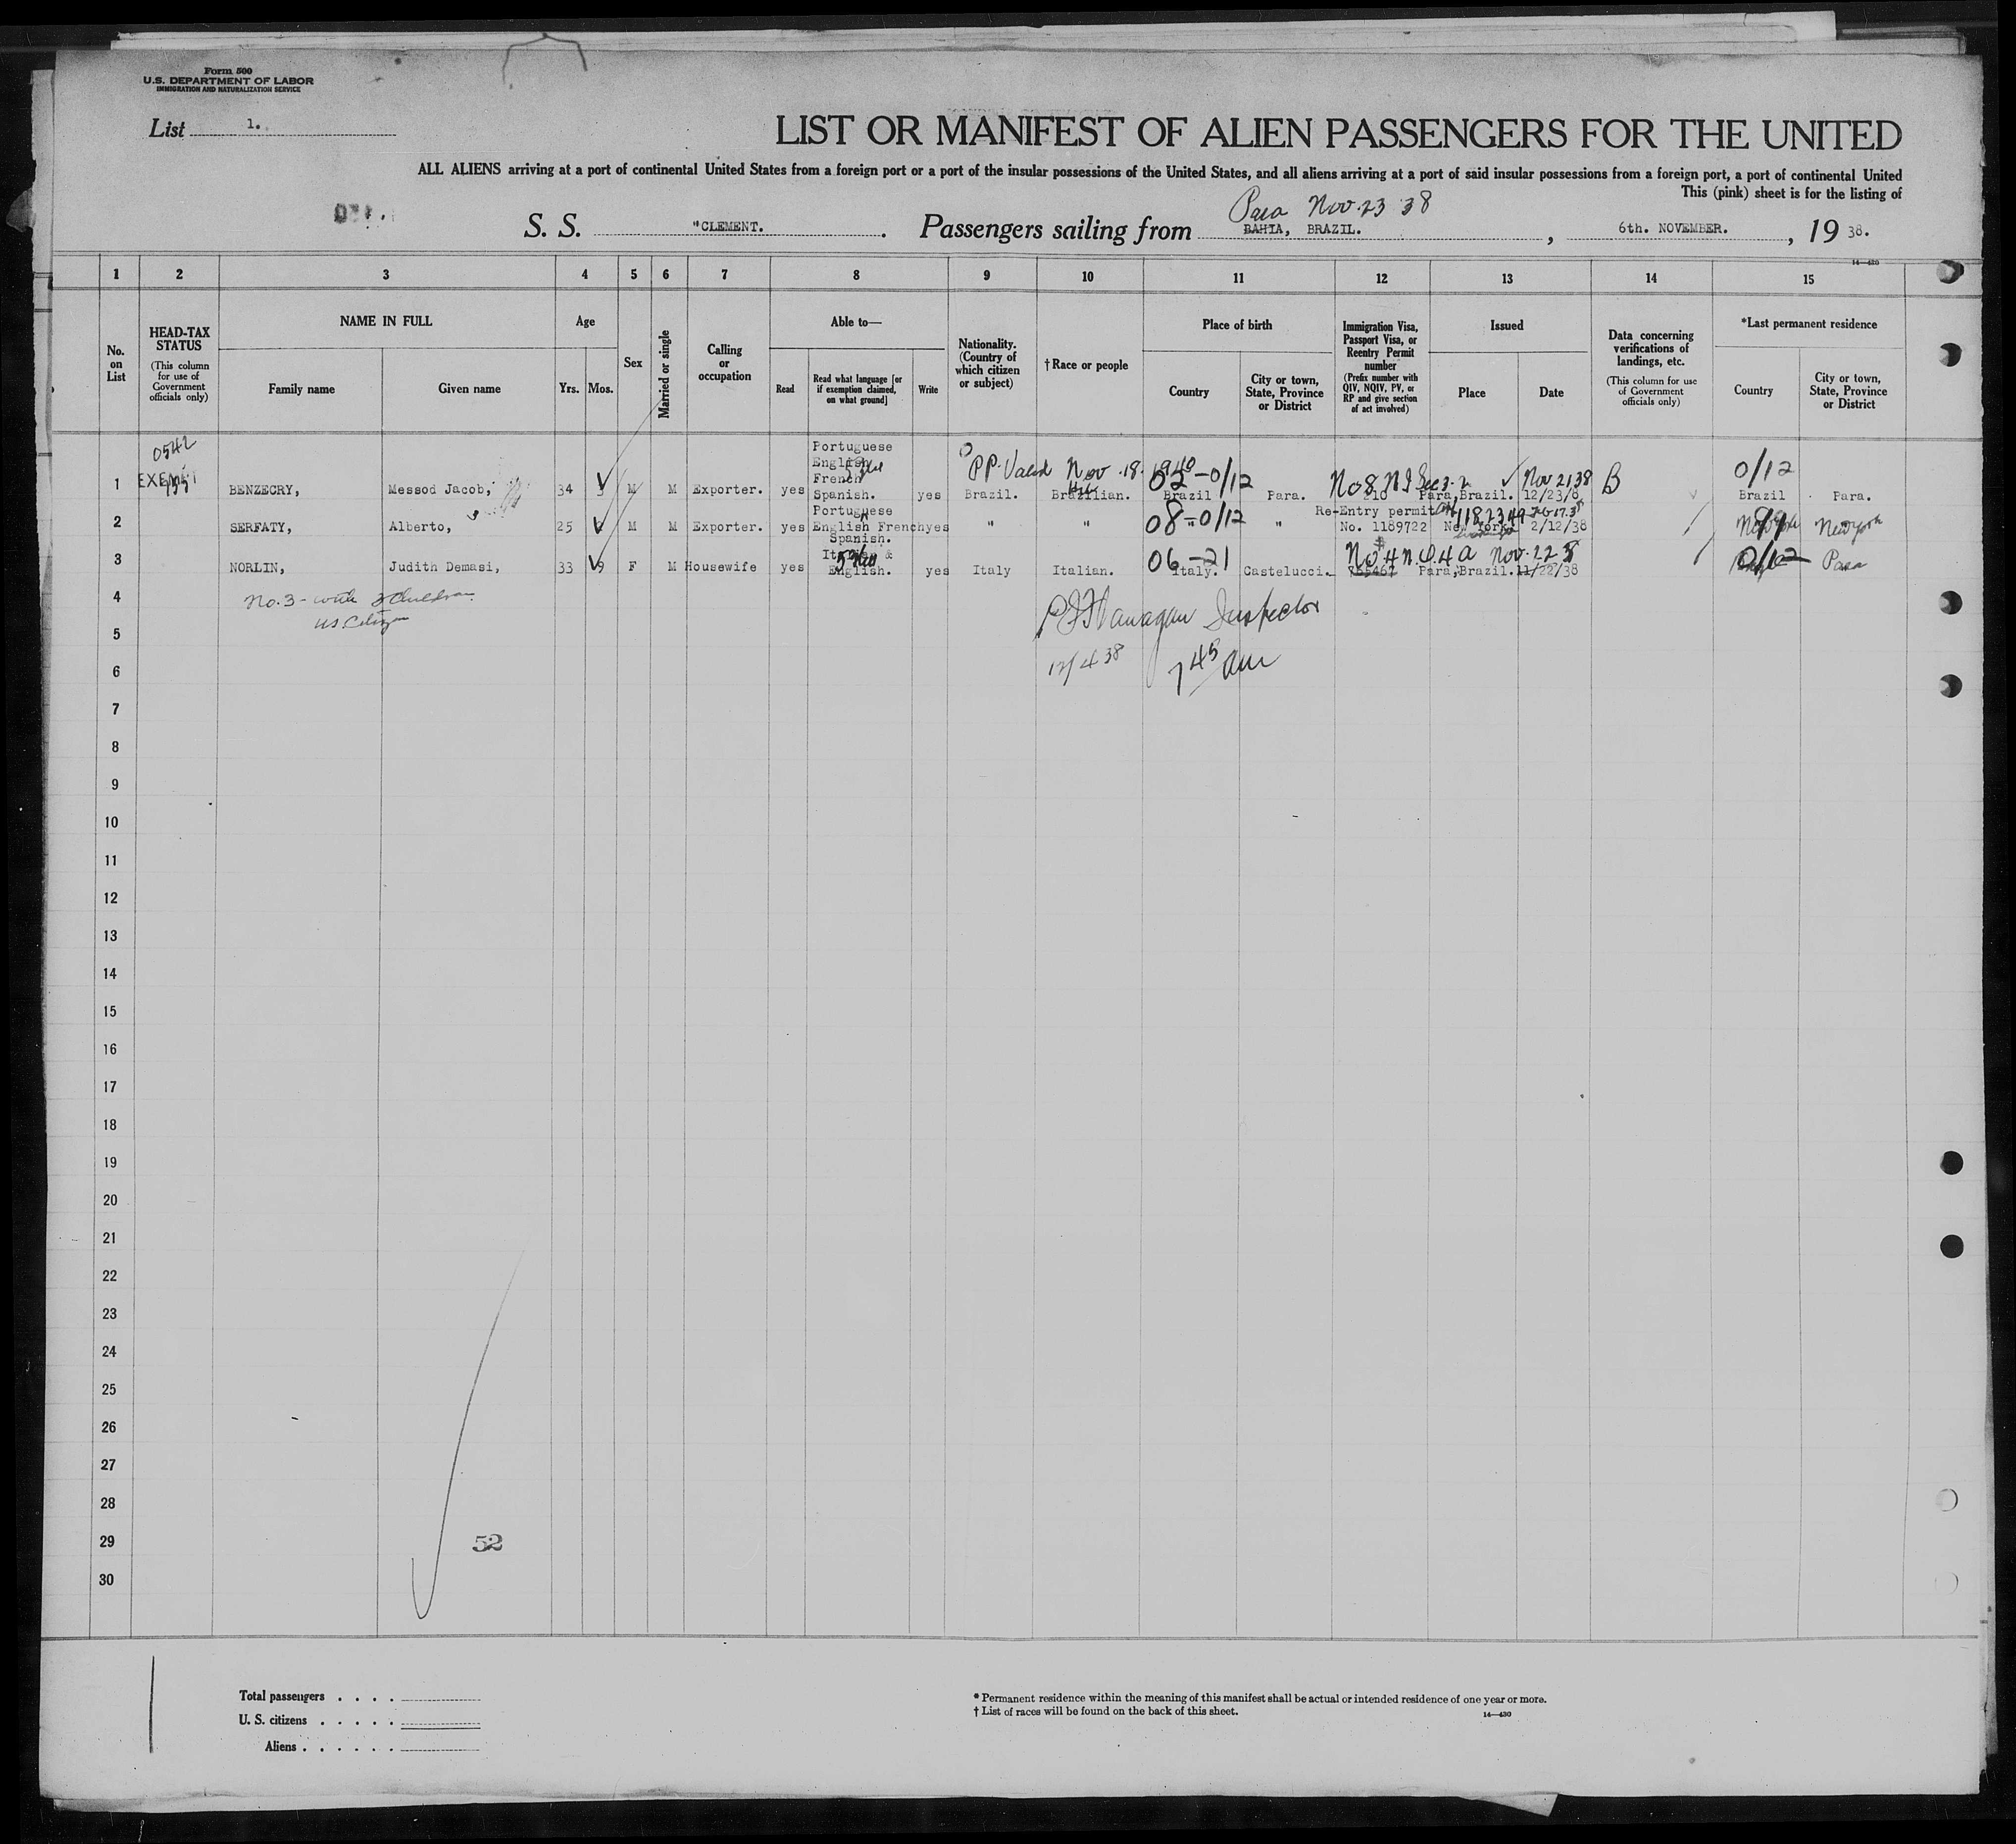 Form 500
U.S. DEPARTMENT OF LABOR
IMMIGRATION AND NATURALIZATION SERVICE
List 1.
LIST OR MANIFEST OF ALIEN PASSENGERS FOR THE UNITED
ALL ALIENS arriving at a port of continental United States from a foreign port or a port of the insular possessions of the United States, and all aliens arriving at a port of said insular possessions from a foreign port, a port of continental United
This (pink) sheet is for the listing of
Para Nov. 23 38
S. S. "CLEMENT. Passengers sailing from BAHIA, BRAZIL. , 6th. NOVEMBER. , 19 38.
14—430
1 2 3 4 5 6 7 8 9 10 11 12 13 14 15
No. on List
HEAD-TAX STATUS
(This column for use of Government officials only)
NAME IN FULL
Family name
Given name
Age
Yrs.
Mos.
Sex
Married or single
Calling or occupation
Able to—
Read
Read what language [or if exemption claimed, on what ground]
Write
Nationality. (Country of which citizen or subject)
†Race or people
Place of birth
Country
City or town, State, Province or District
Immigration Visa, Passport Visa, or Reentry Permit number
(Prefix number with QIV, NQIV, PV, or RP and give section of act involved)
Issued
Place
Date
Data concerning verifications of landings, etc.
(This column for use of Government officials only)
*Last permanent residence
Country
City or town, State, Province or District
0542
EXEMPT
PP. Valid Nov. 18. 1940
02-0/12
No 8 N I Sec 3-2
Nov 21 38
B
0/12
1 BENZECRY, Messod Jacob, 34 M M Exporter. yes Portuguese English French Spanish. yes Brazil. Brazilian. Brazil Para. 210 Para, Brazil. 12/23/8 Brazil Para.
2 SERFATY, Alberto, 25 M M Exporter. yes Portuguese English French Spanish. yes " " 08-0/12 " Re-Entry permit No. 1189722 New York 1182349 2/12/38 New York
3 NORLIN, Judith Demasi, 33 9 F M Housewife yes Italian & English. yes Italy Italian. 06-21 Italy. Castelucci. No 4 N Q 4 a Nov. 22 38 Para, Brazil. 11/22/38 0/12 Para
4 No. 3 - with 3 Children
US Citizen
5
P J Flanagan Inspector
6
12/4 38 7 45 am
7
8
9
10
11
12
13
14
15
16
17
18
19
20
21
22
23
24
25
26
27
28
29
52
30
Total passengers . . . .
U. S. citizens . . . . .
Aliens . . . . . .
* Permanent residence within the meaning of this manifest shall be actual or intended residence of one year or more.
† List of races will be found on the back of this sheet.
14—430